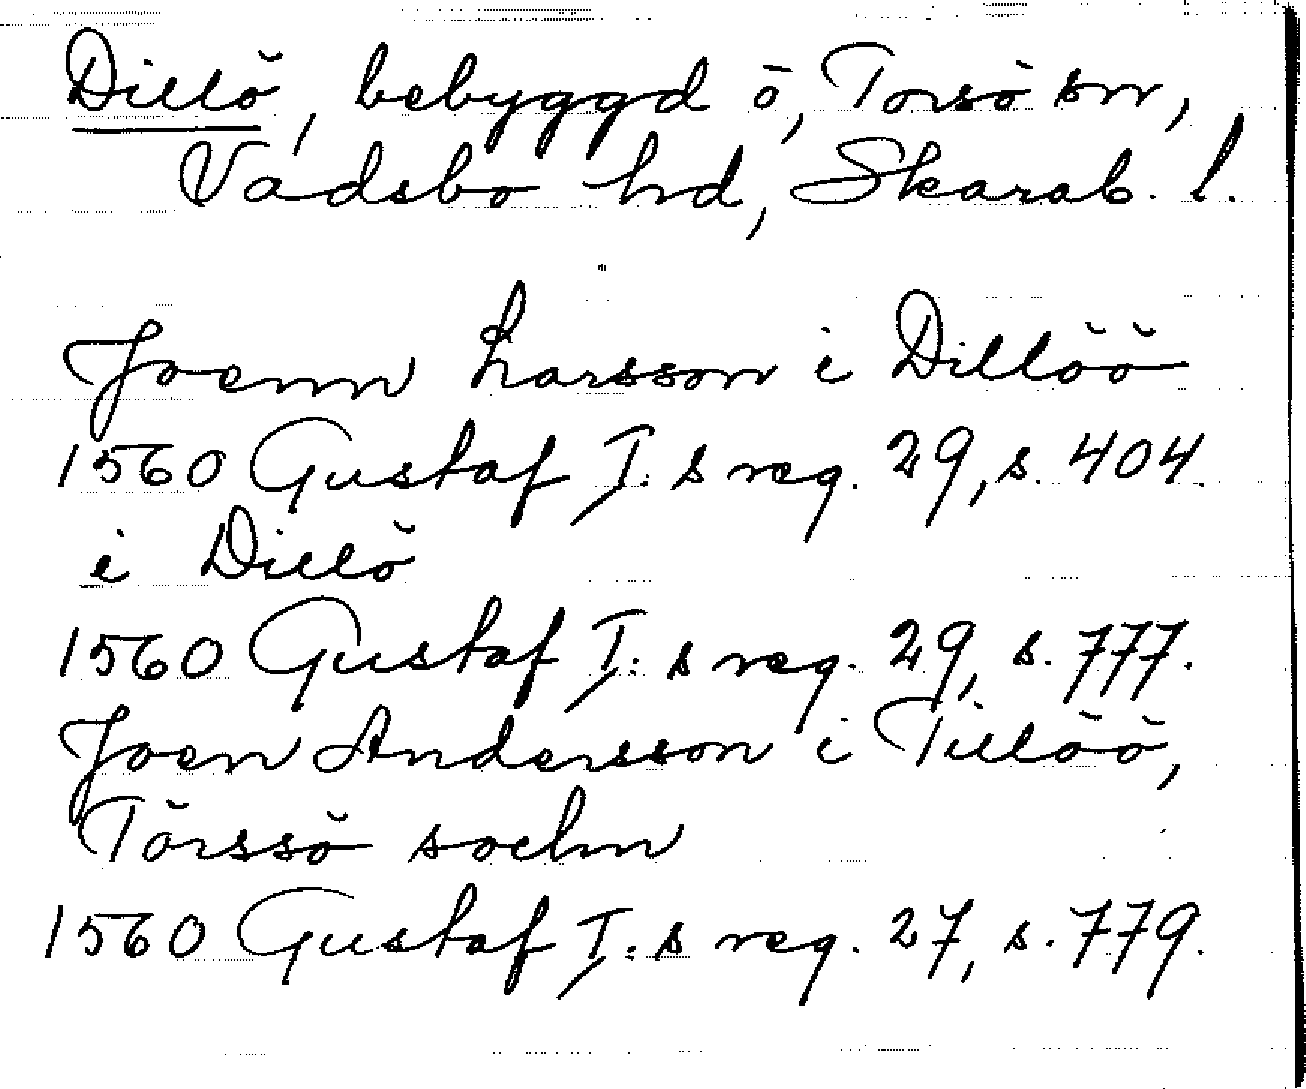 Dillö, bebyggd ö, Torsö sn,
Vadsbo hd, Skarab. l.
Joenn Larsson i Dillöö
1560 Gustaf I:s reg. 29, s. 404.
i Dillö
1560 Gustaf I:s reg. 29, s. 777.
Joen Andersson i Tillöö,
Törssö sochn
1560 Gustaf I:s reg. 27, s. 779.